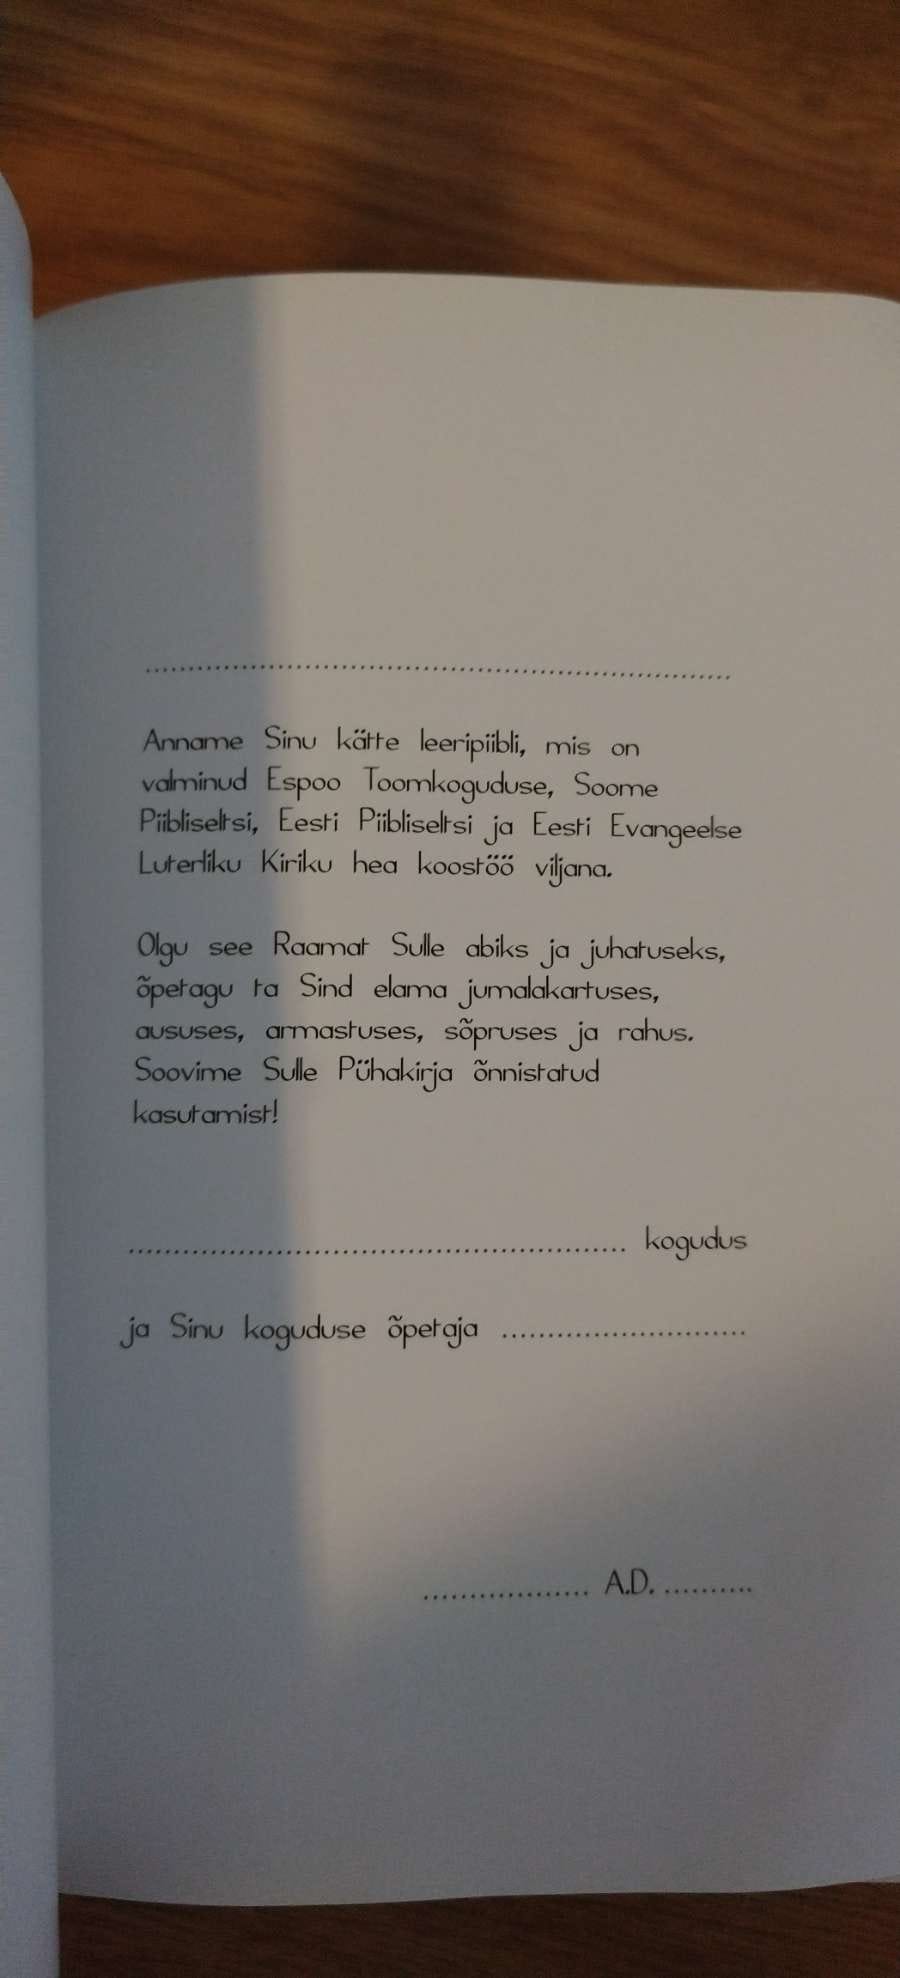 ................................................................
Anname Sinu kätte leeripiibli, mis on
valminud Espoo Toomkoguduse, Soome
Piibliseltsi, Eesti Piibliseltsi ja Eesti Evangeelse
Luterliku Kiriku hea koostöö viljana.
Olgu see Raamat Sulle abiks ja juhatuseks,
õpetagu ta Sind elama jumalakartuses,
aususes, armastuses, sõpruses ja rahus.
Soovime Sulle Pühakirja õnnistatud
kasutamist!
...................................................... kogudus
ja Sinu koguduse õpetaja ...........................
.................. A.D. ..........